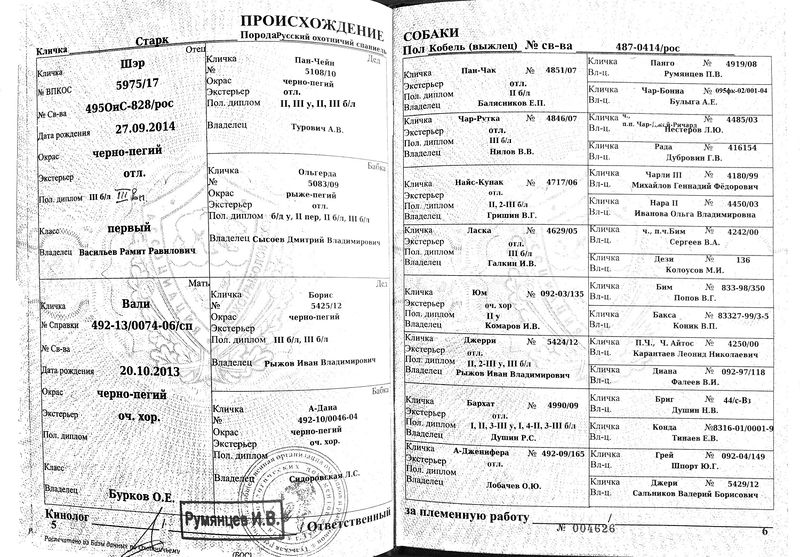 ПРОИСХОЖДЕНИЕ
Кличка Старк Порода Русский охотничий спаниель
Отец
Кличка Шэр
№ ВПКОС 5975/17
№ Св-ва 495ОиС-828/рос
Дата рождения 27.09.2014
Окрас черно-пегий
Экстерьер отл.
Пол. диплом III б/л III
Класс первый
Владелец Васильев Рамит Равилович
Мать
Кличка Вали
№ Справки 492-13/0074-06/сп
№ Св-ва
Дата рождения 20.10.2013
Окрас черно-пегий
Экстерьер оч. хор.
Пол. диплом
Класс
Владелец Бурков О.Е.
Дед
Кличка Пан-Чейн
№ 5108/10
Окрас черно-пегий
Экстерьер отл.
Пол. диплом II, III у, II, III б/л
Владелец Турович А.В.
Бабка
Кличка Ольгерда
№ 5083/09
Окрас рыже-пегий
Экстерьер отл.
Пол. диплом б/д у, II пер, II б/л, III б/л
Владелец Сысоев Дмитрий Владимирович
Дед
Кличка Борис
№ 5425/12
Окрас черно-пегий
Экстерьер
Пол. диплом III б/л, III б/л
Владелец Рыжов Иван Владимирович
Бабка
Кличка А-Дана
№ 492-10/0046-04
Окрас черно-пегий
Экстерьер оч. хор.
Пол. диплом
Владелец Сидоровская Л.С.
Кинолог Румянцев И.В. / Ответственный
5
(ВОС)
СОБАКИ
Пол Кобель (выжлец) № св-ва 487-0414/рос
Кличка Пан-Чак № 4851/07
Экстерьер отл.
Пол. диплом II б/л
Владелец Балясников Е.П.
Кличка Чар-Рутка № 4846/07
Экстерьер отл.
Пол. диплом III б/л
Владелец Нилов В.В.
Кличка Найс-Кунак № 4717/06
Экстерьер отл.
Пол. диплом II, 2-III б/л
Владелец Гришин В.Г.
Кличка Ласка № 4629/05
Экстерьер отл.
Пол. диплом III б/л
Владелец Галкин И.В.
Кличка Юм № 092-03/135
Экстерьер оч. хор
Пол. диплом II у
Владелец Комаров И.В.
Кличка Джерри № 5424/12
Экстерьер отл.
Пол. диплом II, 2-III у, III б/л
Владелец Рыжов Иван Владимирович
Кличка Бархат № 4990/09
Экстерьер отл.
Пол. диплом I, II, 3-III у, I, 4-II, 3-III б/л
Владелец Душин Р.С.
Кличка А-Дженифера № 492-09/165
Экстерьер отл.
Пол. диплом
Владелец Лобачев О.Ю.
Кличка Панго № 4919/08
Вл-ц. Румянцев П.В.
Кличка Чар-Бонна № 095фк-02/001-04
Вл-ц. Булыга А.Е.
Кличка ч., п.п. № 4485/03
Вл-ц. Нестеров Л.Ю.
Кличка Рада № 416154
Вл-ц. Дубровин Г.В.
Кличка Чарли III № 4180/99
Вл-ц. Михайлов Геннадий Фёдорович
Кличка Нара II № 4450/03
Вл-ц. Иванова Ольга Владимировна
Кличка ч., п.ч.Бим № 4242/00
Вл-ц. Сергеев В.А.
Кличка Дези № 136
Вл-ц. Колоусов М.И.
Кличка Бим № 833-98/350
Вл-ц. Попов В.Г.
Кличка Бакса № 83327-99/3-5
Вл-ц. Коник В.П.
Кличка П.Ч., Ч. Айтос № 4250/00
Вл-ц. Карантаев Леонид Николаевич
Кличка Диана № 092-97/118
Вл-ц. Фалеев В.И.
Кличка Бриг № 44/с-Вз
Вл-ц. Душин Н.В.
Кличка Конда №8316-01/0001-9
Вл-ц. Тинаев Е.В.
Кличка Грей № 092-04/149
Вл-ц. Шпорт Ю.Г.
Кличка Джери № 5429/12
Вл-ц. Сальников Валерий Борисович
за племенную работу /
№ 004626
6